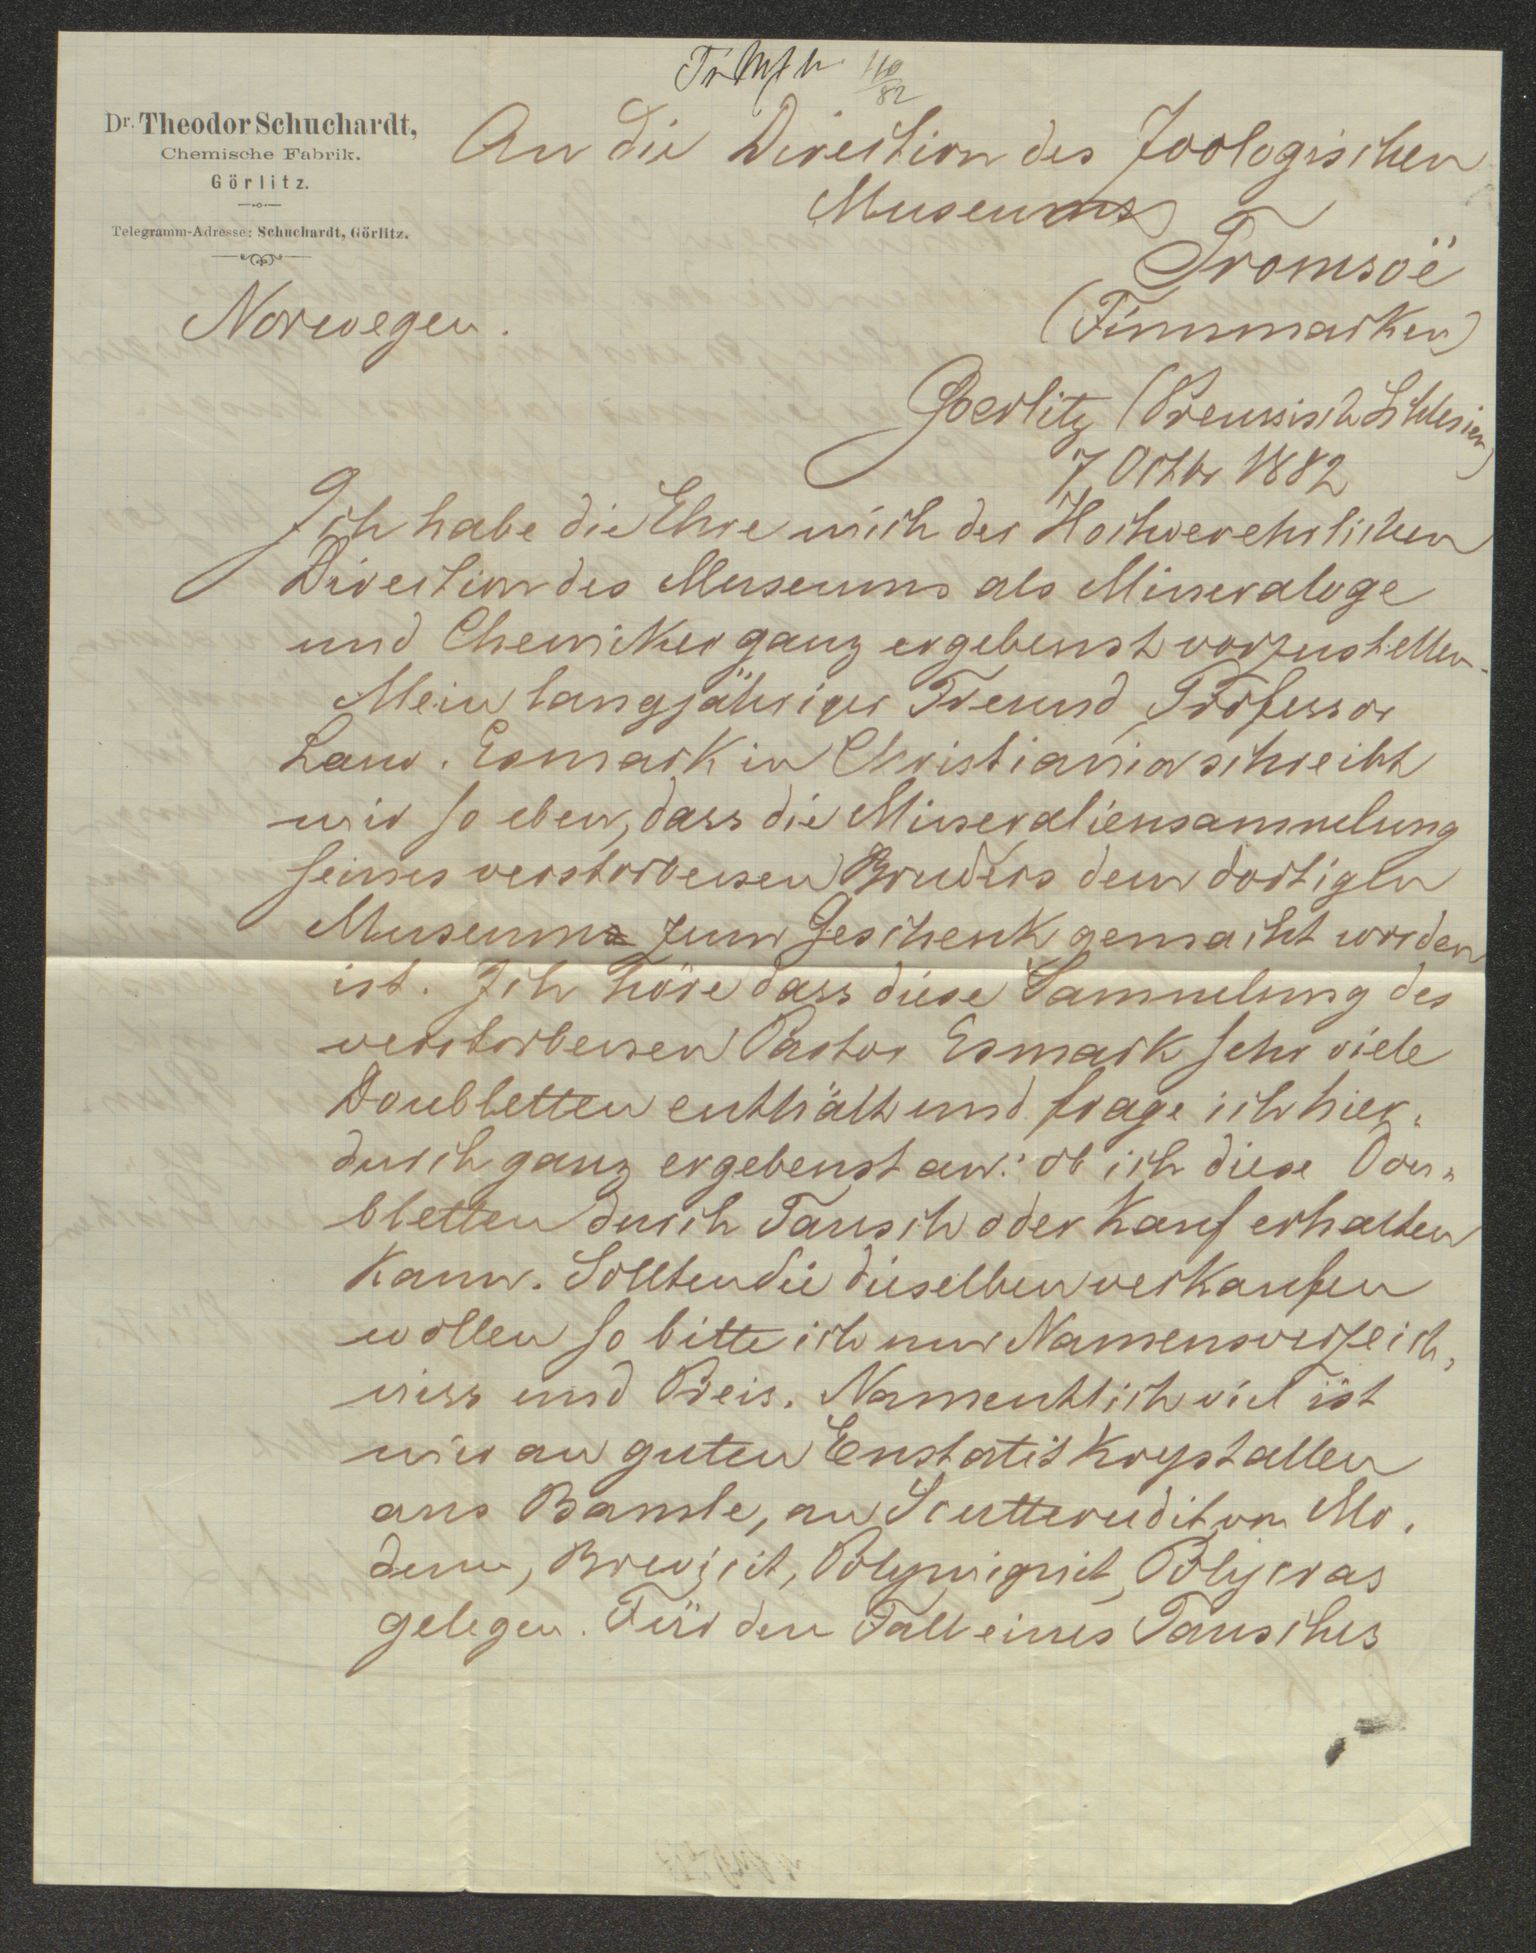 Tr. Mfh. 110/82
Dr. Theodor Schuchardt,
Chemische Fabrik.
Görlitz.
Telegramm-Adresse: Schuchardt, Görlitz.
An die Direction des Zoologischen
Museums
Tromsoë
(Finnmarken)
Norwegen.
Goerlitz (Preussisch Schlesien)
7 Octbr 1882
Ich habe die Ehre mich der Hochverehrlichen
Direction des Museums als Mineraloge
und Chemiker ganz ergebenst vorzustellen.
Mein langjähriger Freund Professor
Laur. Esmark in Christiania schreibt
mir so eben, dass die Mineraliensammlung
seines verstorbenen Bruders dem dortigen
Museum zum Geschenk gemacht worden
ist. Ich höre dass diese Sammlung des
verstorbenen Pastor Esmark sehr viele
Doubletten enthält und frage ich hier-
durch ganz ergebenst an: ob ich diese Dou-
bletten durch Tausch oder Kauf erhalten
kann. Sollten Sie dieselben verkaufen
wollen so bitte ich nur Namensverzeich-
niss und Preis. Namentlich viel ist
mir an guten Enstatit Krystallen
aus Bamle, an Scutterudit von Mo-
dum, Brevicit, Polymignit, Polycras
gelegen. Für den Fall eines Tausches